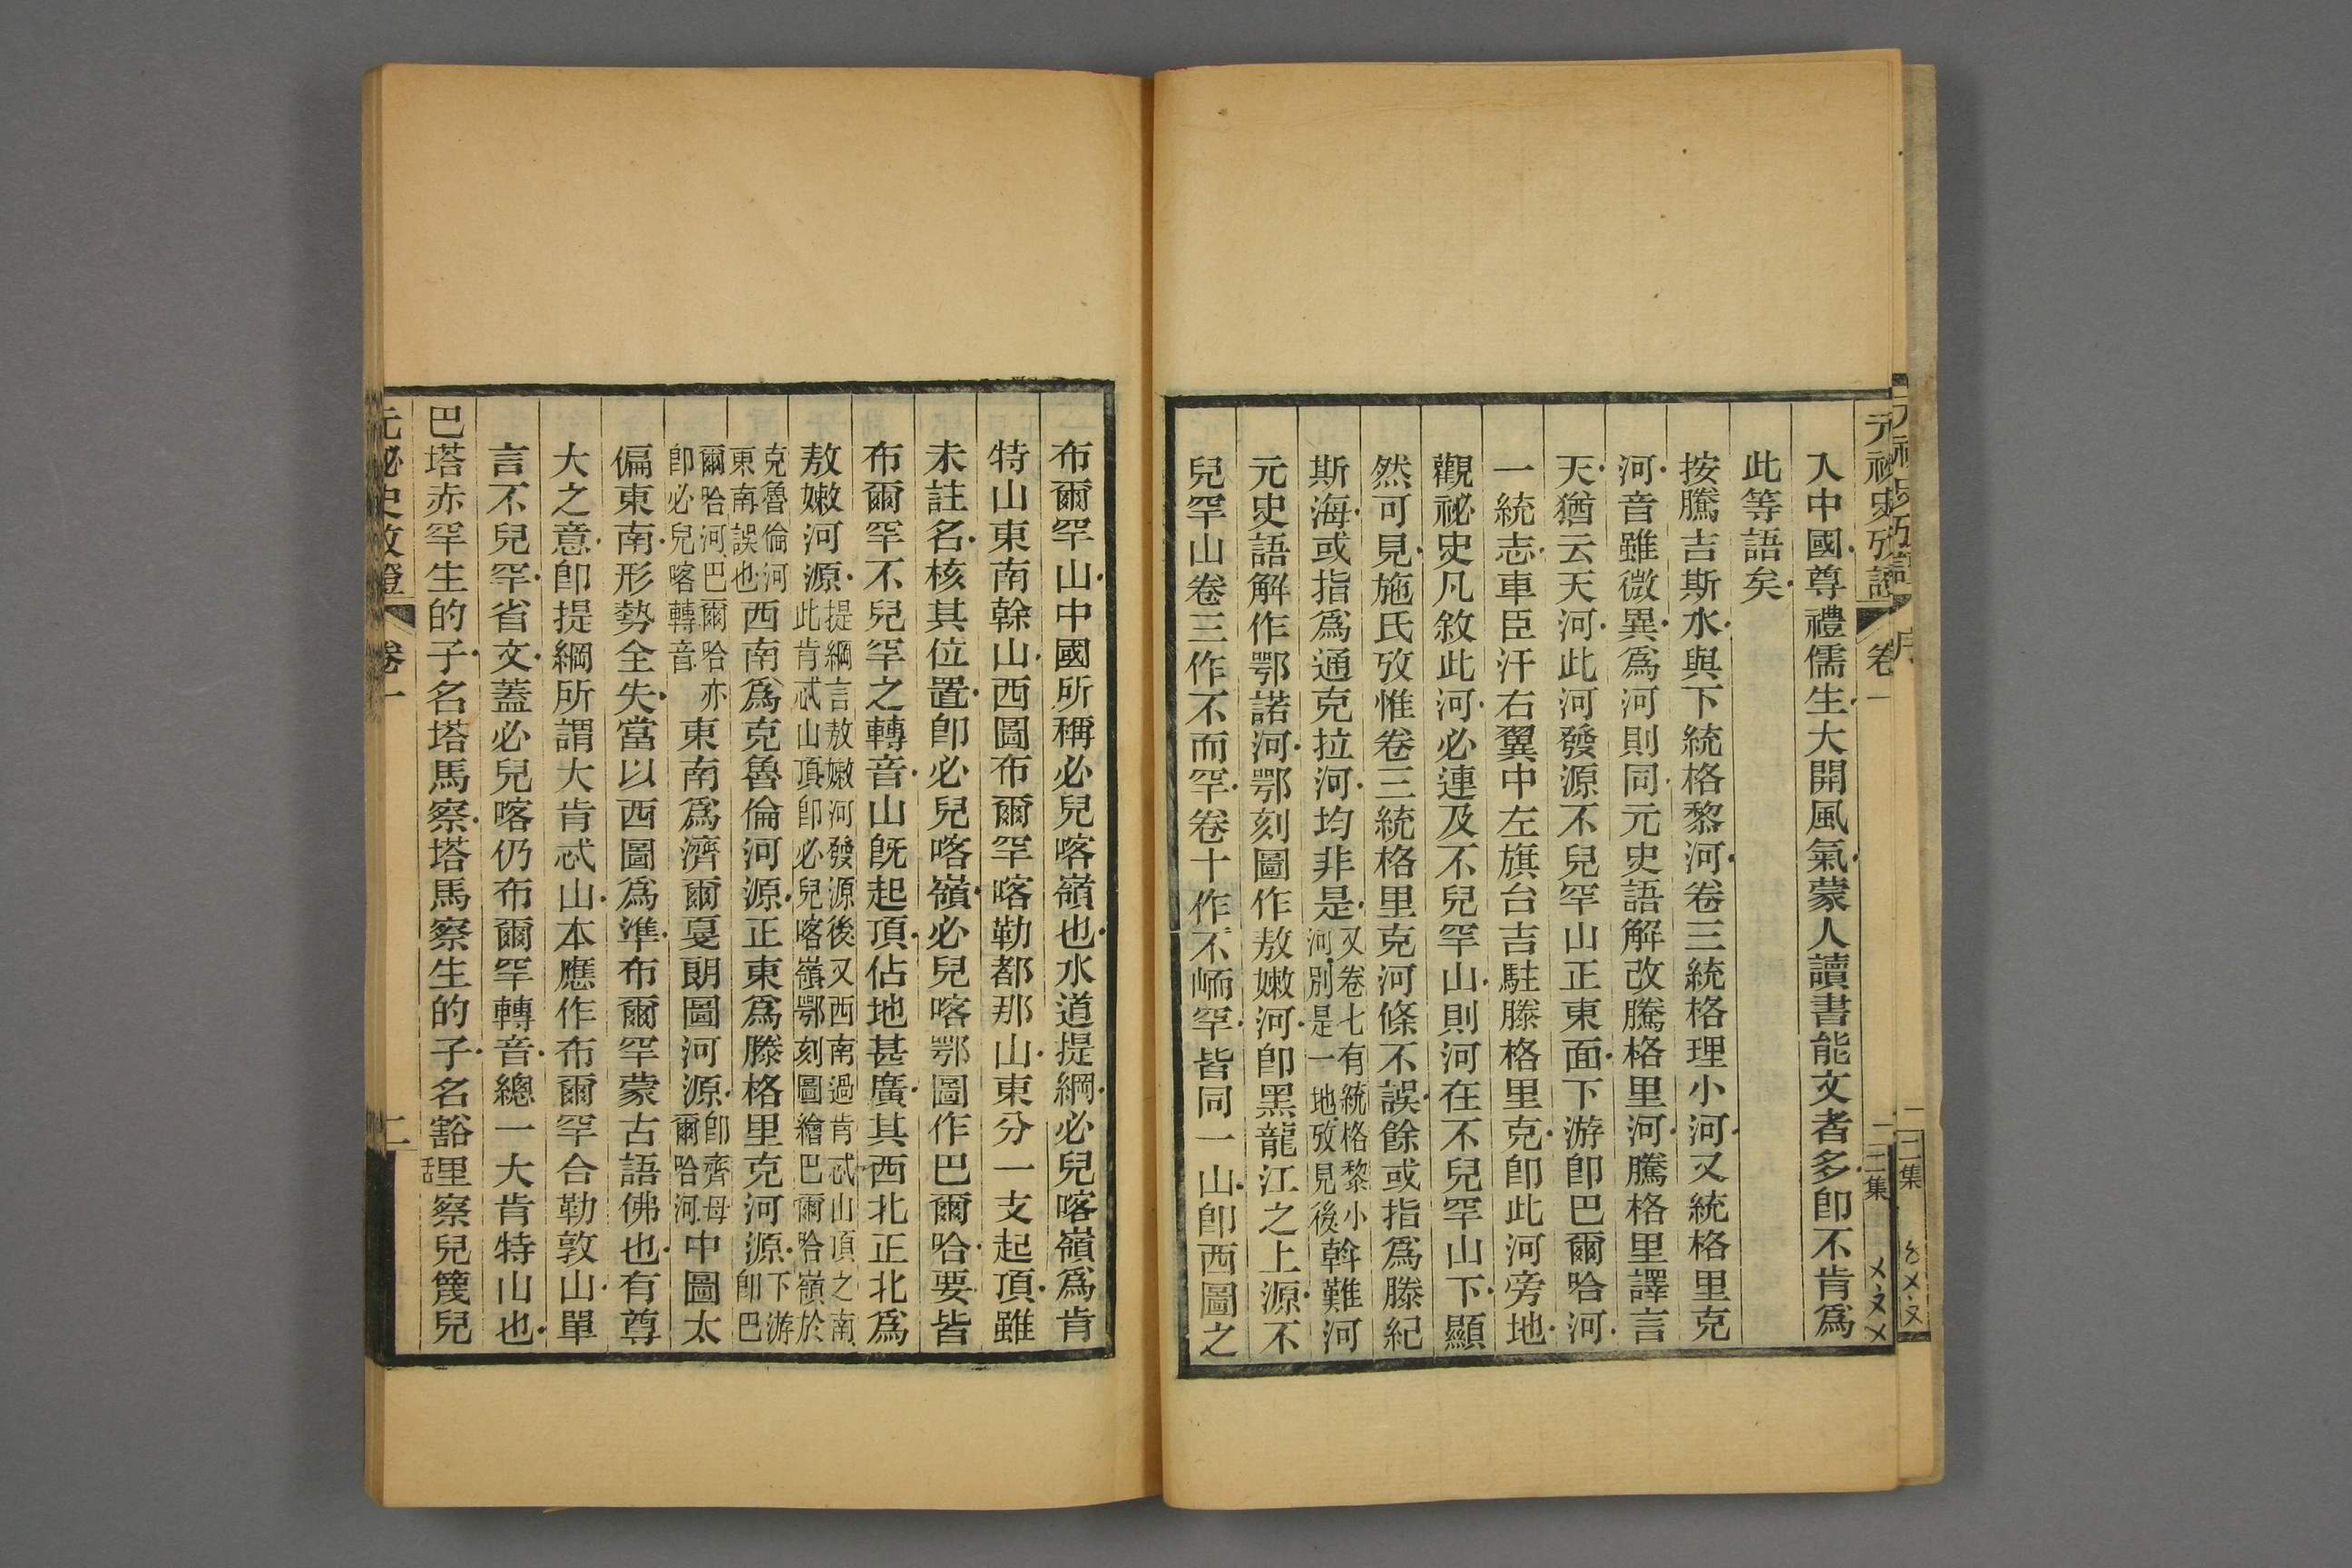 元祕史攷證 卷一 二集
入中國尊禮儒生大開風氣蒙人讀書能文者多卽不肯爲
此等語矣
按騰吉斯水與下統格黎河卷三統格理小河又統格里克
河音雖微異爲河則同元史語解改騰格里河騰格里譯言
天猶云天河此河發源不兒罕山正東面下游卽巴爾哈河
一統志車臣汗右翼中左旗台吉駐滕格里克卽此河旁地
觀祕史凡敘此河必連及不兒罕山則河在不兒罕山下顯
然可見施氏攷惟卷三統格里克河條不誤餘或指爲滕紀
斯海或指爲通克拉河均非是又卷七有統格黎小河別是一地攷見後斡難河
元史語解作鄂諾河鄂刻圖作敖嫩河卽黑龍江之上源不
兒罕山卷三作不而罕卷十作不峏罕皆同一山卽西圖之
布爾罕山中國所稱必兒喀嶺也水道提綱必兒喀嶺爲肯
特山東南榦山西圖布爾罕喀勒都那山東分一支起頂雖
未註名核其位置卽必兒喀嶺必兒喀鄂圖作巴爾哈要皆
布爾罕不兒罕之轉音山旣起頂佔地甚廣其西北正北爲
敖嫩河源提綱言敖嫩河發源後又西南過肯忒山頂之南此肯忒山頂卽必兒喀嶺鄂刻圖繪巴爾哈嶺於
克魯倫河東南誤也西南爲克魯倫河源正東爲滕格里克河源下游卽巴
爾哈河巴爾哈亦卽必兒喀轉音東南爲濟爾戛朗圖河源卽齊母爾哈河中圖太
偏東南形勢全失當以西圖爲準布爾罕蒙古語佛也有尊
大之意卽提綱所謂大肯忒山本應作布爾罕合勒敦山單
言不兒罕省文蓋必兒喀仍布爾罕轉音總一大肯特山也
巴塔赤罕生的子名塔馬察塔馬察生的子名豁里察兒篾兒
元祕史攷證 卷一 二